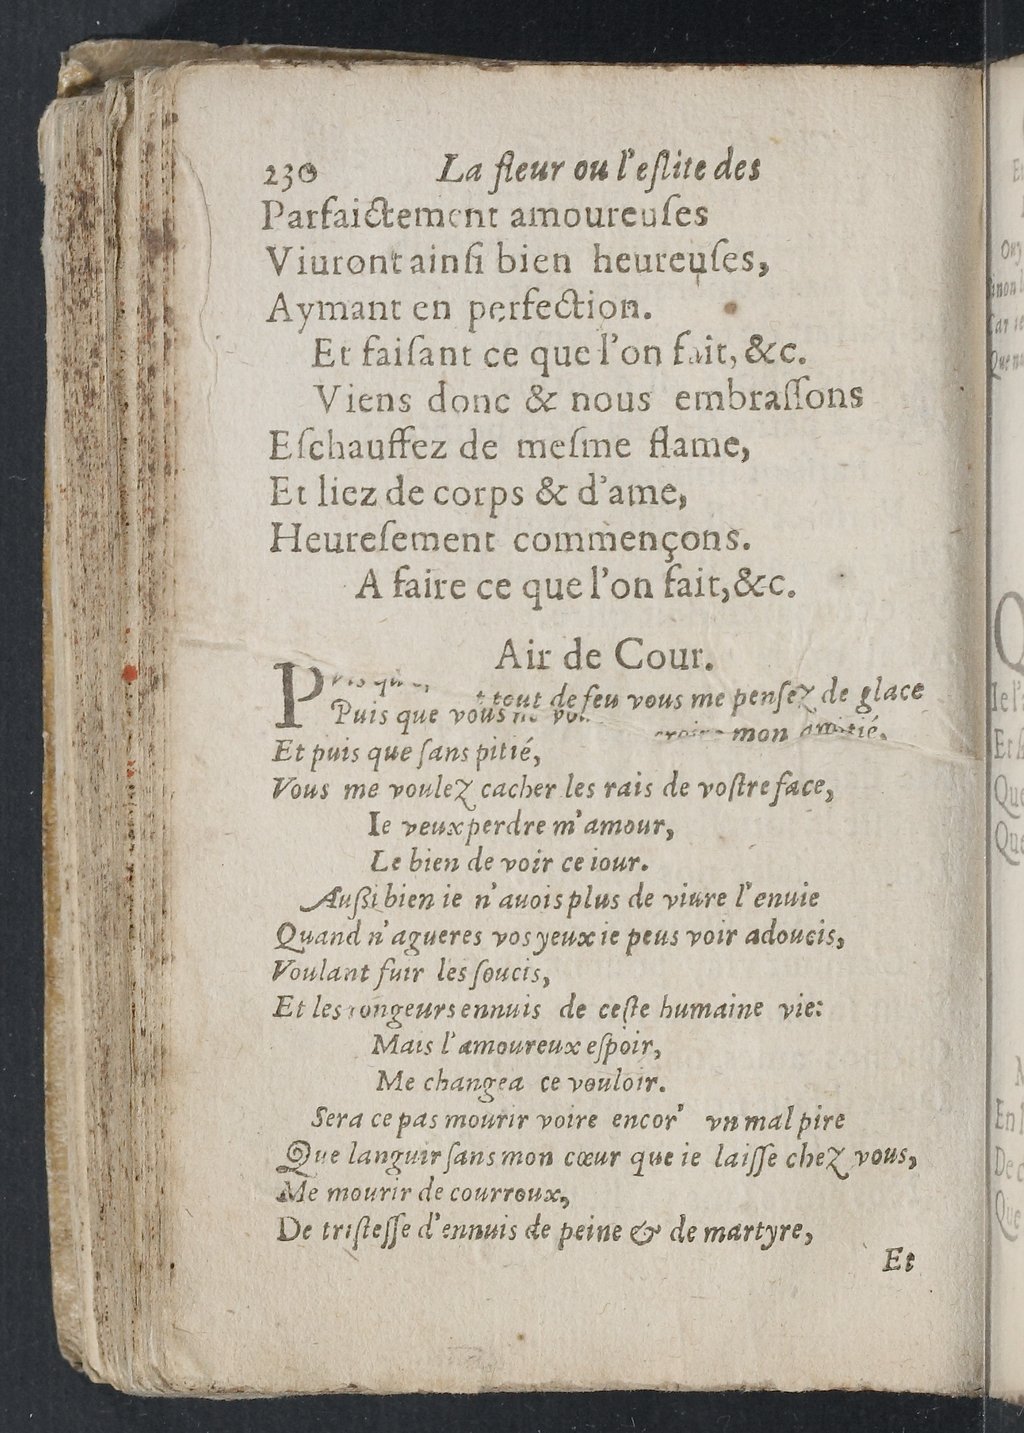 230 La fleur ou l'eſlite des
Parfaictement amoureuſes
Viuront ainſi bien heureuſes,
Aymant en perfection.
Et faiſant ce que l'on fait, &c.
Viens donc & nous embraſſons
Eſchauffez de meſme flame,
Et liez de corps & d'ame,
Heureſement commençons.
A faire ce que l'on fait,&c.
Air de Cour.
tout de feu vous me penſez de glace
Puis que vous
mon amitié.
Et puis que ſans pitié,
Vous me voulez cacher les rais de voſtre face,
Ie veux perdre m'amour,
Le bien de voir ce iour.
Auſſi bien ie n'auois plus de viure l'enuie
Quand n'agueres vos yeux ie peus voir adoucis,
Voulant fuir les ſoucis,
Et les rongeurs ennuis de ceſte humaine vie:
Mais l'amoureux eſpoir,
Me changea ce vouloir.
Sera ce pas mourir voire encor' vn mal pire
Que languir ſans mon cœur que ie laiſſe chez vous,
Me mourir de courroux,
De triſteſſe d'ennuis de peine & de martyre,
Et